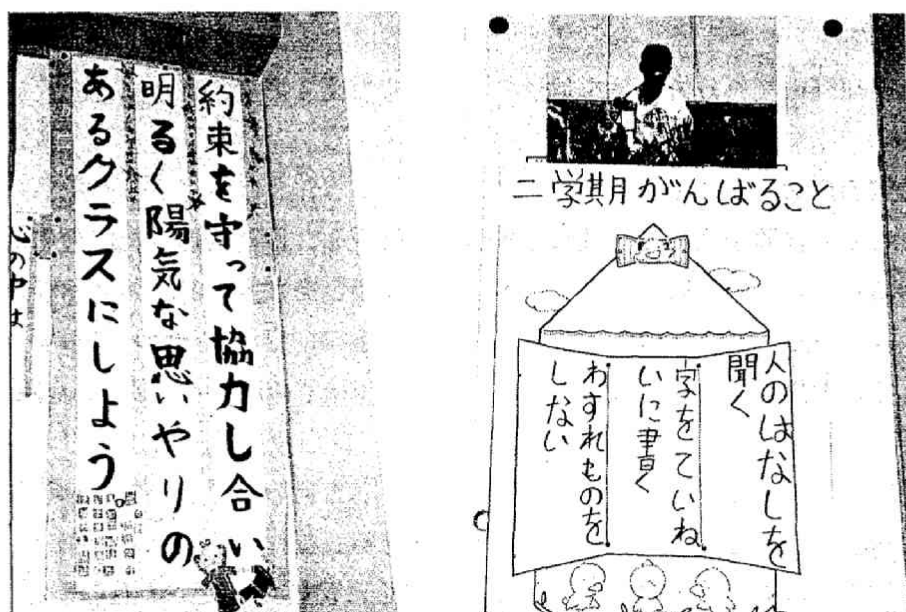 約束を守って協力し合い
明るく陽気な思いやりの
あるクラスにしよう。
心の中は
二学期がんばること
人のはなしを
聞く
字をていね
いに書く
わすれものを
しない